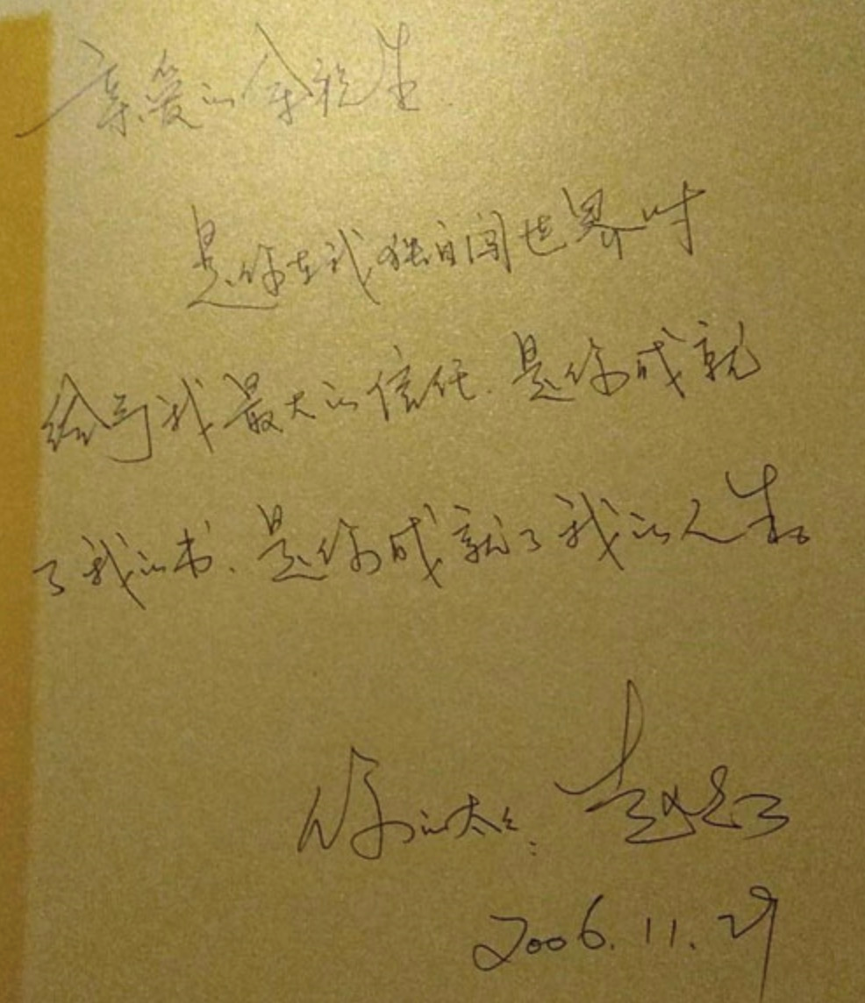 亲爱的余先生
是你在我独自闯世界时
给予我最大的信任.是你成就
了我的书.是你成就了我的人生。
你的太太: 赵红
2006.11.29